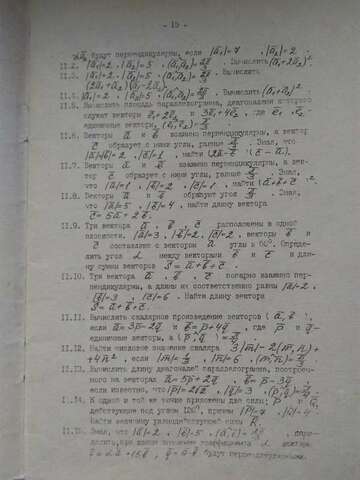 - 15 -
будут перпендикулярны, если |a̅₁|=7 . |a̅₂|=2 .
11.2. |a̅₁|=2 . |a̅₂|=5 . Вычислить (a̅₁+2a̅₂)².
11.3. |a̅₁|=2 . |a̅₂|=5 . Вычислить
(2a̅₁+a̅₂)(a̅₁-2a̅₂).
11.4. |a̅₁|=2 . |a̅₂|=5 . Вычислить (a̅₁+a̅₂)².
11.5. Вычислить площадь параллелограмма, диагоналями которого
служат векторы e̅₁+2e̅₂ и 3e̅₁+4e̅₂, где e̅₁, e̅₂ -
единичные векторы,
11.6. Векторы a̅ и b̅ взаимно перпендикулярны, а вектор
c̅ образует с ними углы, равные . Зная, что
|a̅|=|b̅|=2 . |c̅|=1 , найти
11.7. Векторы a̅ и b̅ взаимно перпендикулярны, а век-
тор c̅ образует с ними углы, равные . Зная,
что |a̅|=1 . |b̅|=2 . |c̅|=1 , найти (a̅+b̅+c̅)².
11.8. Векторы a̅ и b̅ образуют угол . Зная,
что |a̅|=5 . |b̅|=4 , найти длину вектора
c̅=5a̅+2b̅.
11.9. Три вектора a̅ , b̅ , c̅ расположены в одной
плоскости. |a̅|=3 , |b̅|=2 , |c̅|=2 , векторы b̅ и
c̅ составляют с вектором a̅ углы в 60°. Опреде-
лить угол α между векторами b̅ и c̅ и дли-
ну суммы векторов S̅=a̅+b̅+c̅
11.10. Три вектора a̅ , b̅ , c̅ попарно взаимно пер-
пендикулярны, а длины их соответственно равны |a̅|=2 .
|b̅|=3 , |c̅|=6 . Найти длину вектора
S̅=a̅+b̅+c̅ .
11.11. Вычислить скалярное произведение векторов (a̅, b̅ ,
если a̅=3p̅-2q̅ и b̅=p̅+4q̅ , где p̅ и q̅ -
единичные векторы, а
11.12. Найти числовое значение скаляра 3|m̅|²-2(m̅,n̅)+
+4n̅² , если . |n̅|=6 .
11.13. Вычислить длину диагоналей параллелограмма, построен-
ного на векторах a̅=5p̅+2q̅ и b̅=p̅-3q̅
если известно, что |p̅|=2√2 , |q̅|=3 .
11.14. К одной и той же точке приложены две силы,
действующие под углом 120°, причем |P̅|=7 .
Найти величину равнодействующей силы R̅.
11.15. Зная, что |a̅|=2 . |b̅|=5 . , опре-
делить, при каком значении коэффициента α векторы
будут перпендикулярными.